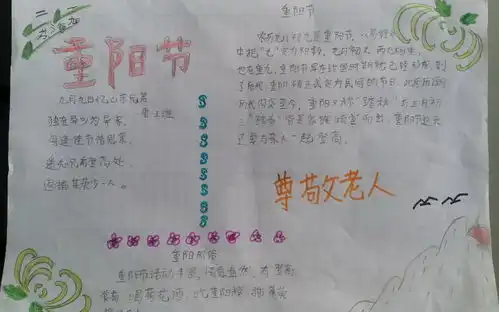 重阳节
九月九日忆山东兄弟
王维
独在异乡为异客,
每逢佳节倍思亲。
遥知兄弟登高处,
遍插茱萸少一人。
重阳节
农历九月初九是重阳节,
中把“九”定为阳数,九月初九,两九相重,
了唐代,重阳被正式定为民间的节日,此后历朝
历代沿袭至今,重阳又称“踏秋”与三月初
三“踏春”皆是家族倾室而出,重阳这天
亲人一起登高
尊敬老人
重阳风俗
重阳节活动丰富,情趣盎然,有登高
赏菊 喝菊花酒 吃重阳糕 插茱萸